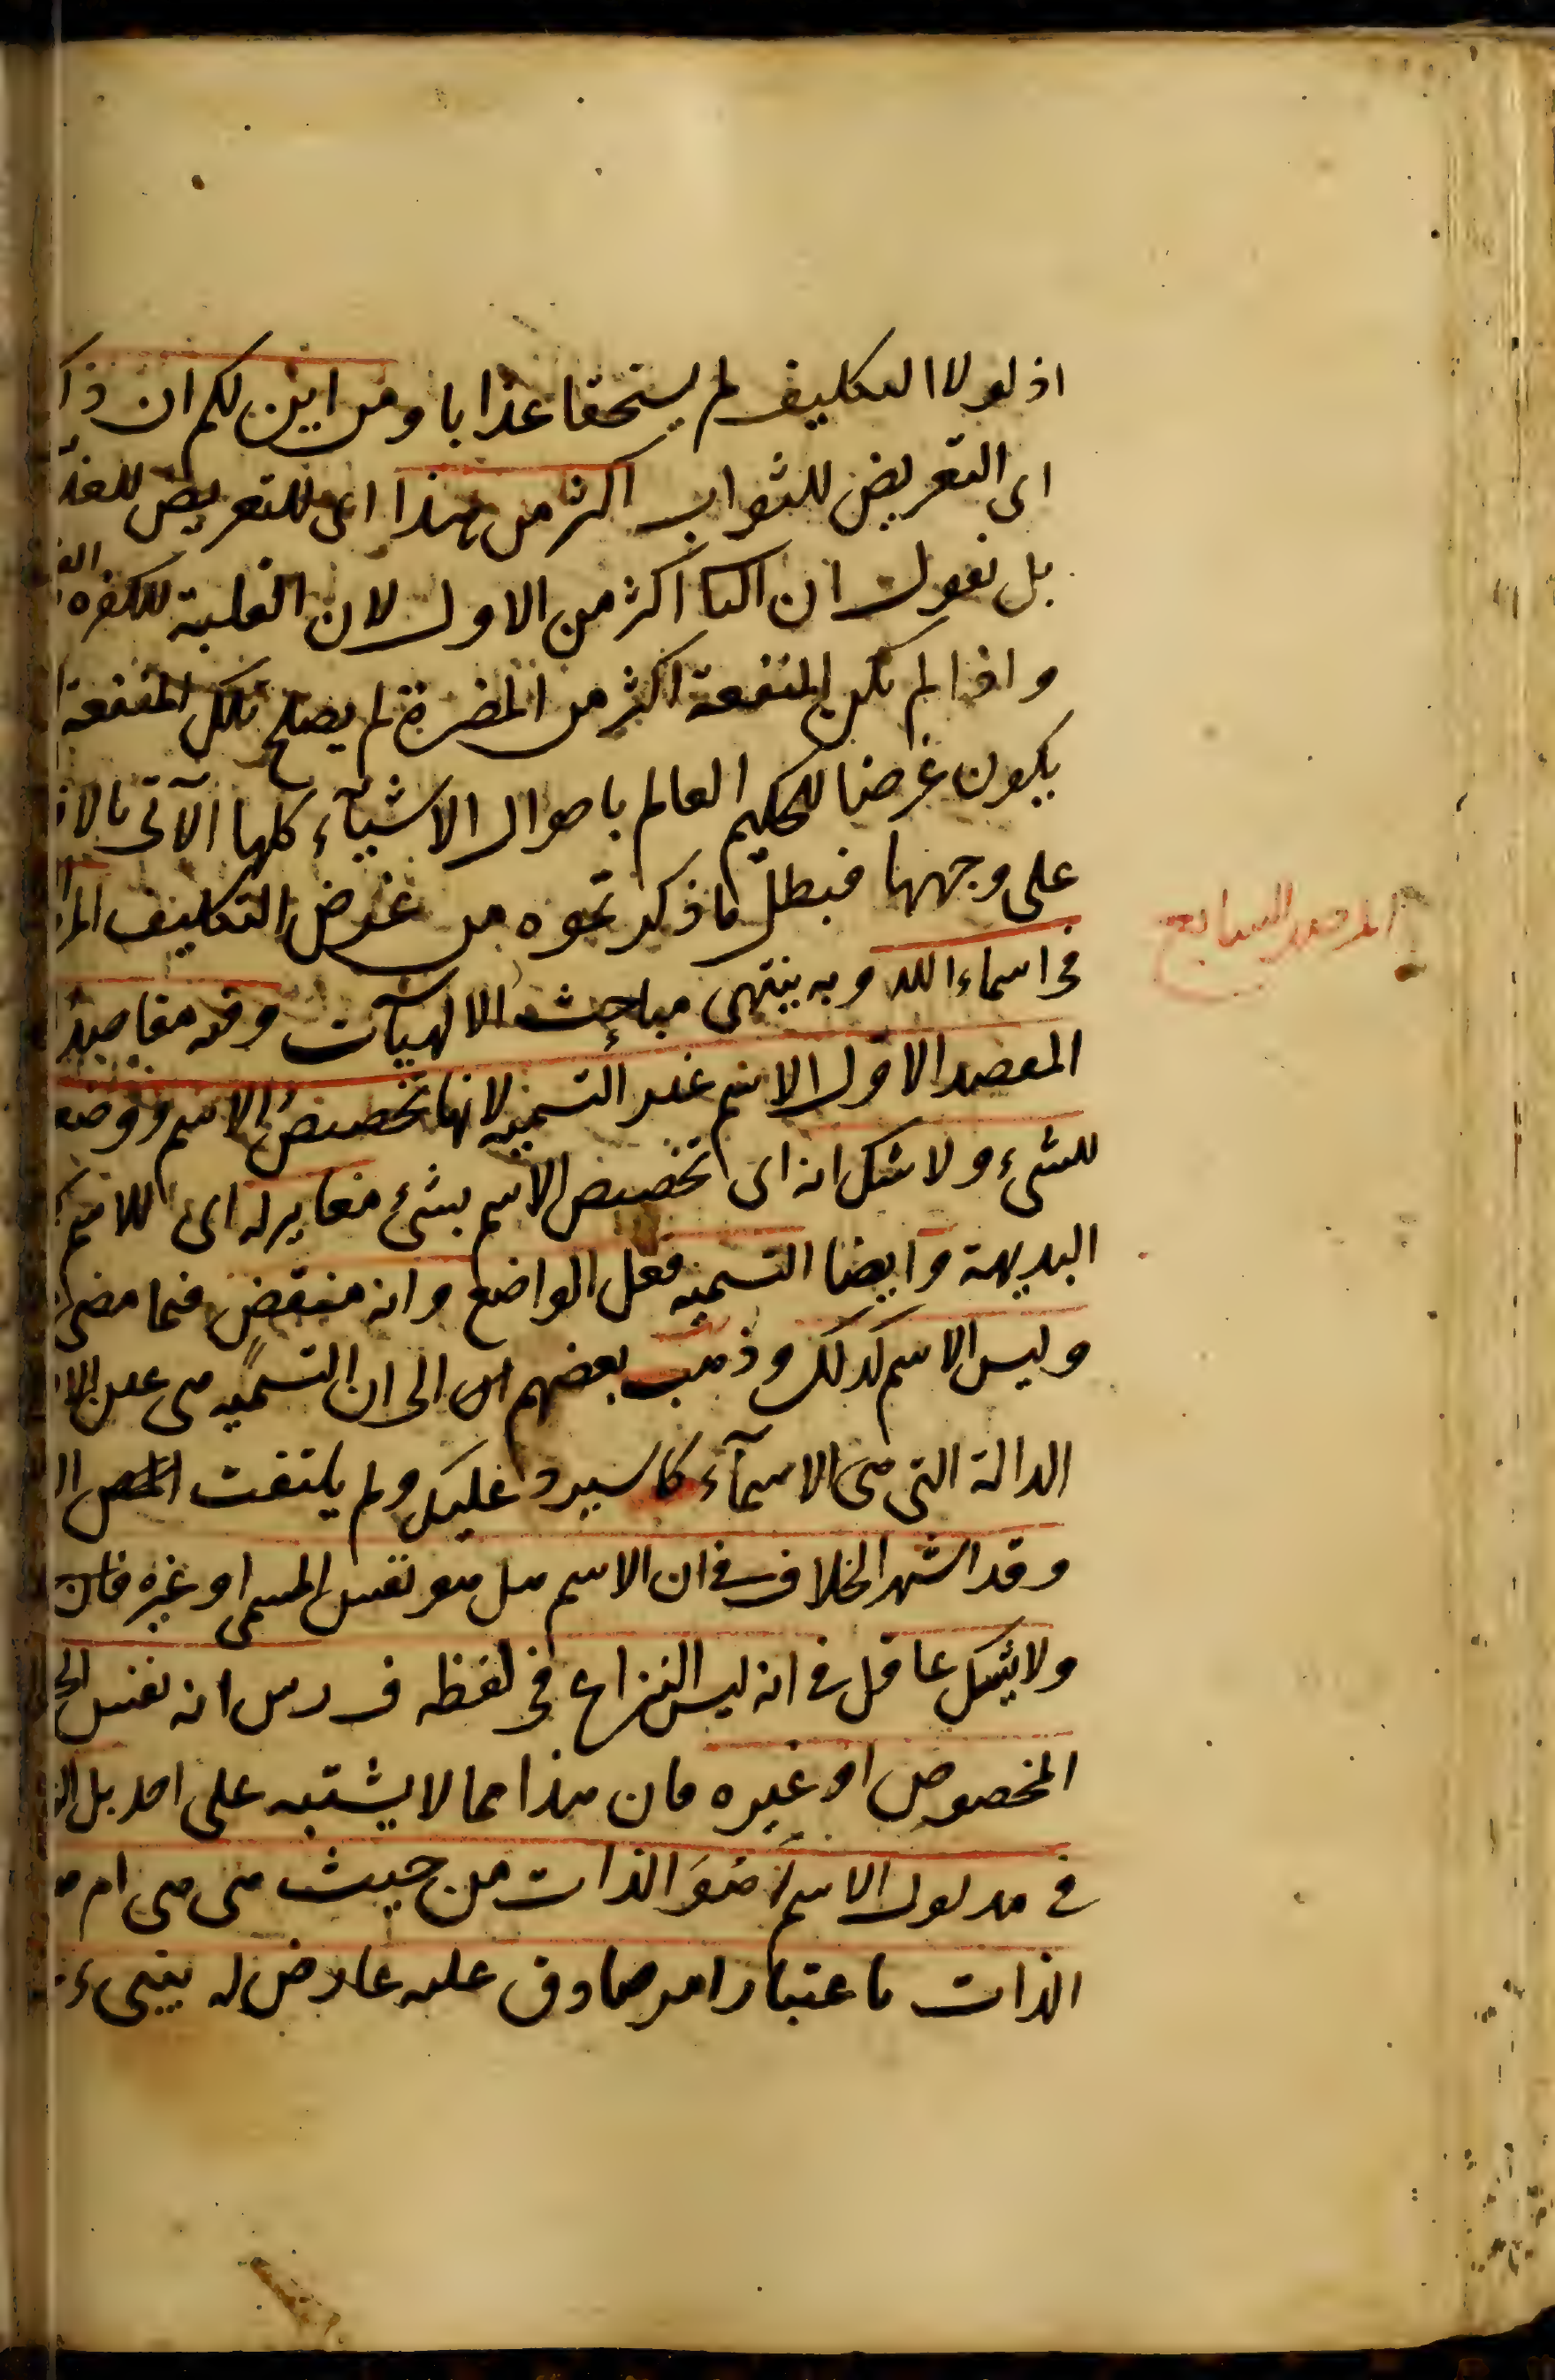 اذ لولا التكليف لم يستحقا عذابا ومن اين لكم ان ذ
اى التعريض للثواب اكثر من هذا اى للتعريض للعذ
بل نقول ان الثا اكثر من الاول لان الغلبة للكفرة
واذا لم تكن المنفعة اكثر من المضرة لم يصلح تلك المنفعة
يكون غرضا للحكيم العالم باحوال الاشيآء كلها الآتى بالا
على وجهها فبطل ما ذكرتموه من غرض التكليف المر
المرصد السابع
فى اسماء الله وبه ينتهى مباحث الالهيآت وفيه مقاصد
المقصد الاول الاسم غير التسمية لانها تخصيص الاسم ووضعه
للشىء ولا شك انه اى تخصيص الاسم بشئ مغاير له اى للاسم
البديهة وايضا التسمية فعل الواضع وانه منقض فيما مضى
وليس الاسم كذلك وذهب بعضهم الى ان التسمية هى عين الا
الدالة التى هى الاسمآء كما سيرد عليك ولم يلتفت المص ا
وقد اشتهر الخلاف فى ان الاسم هل هو نفس المسمى او غيره
ولا يشك عاقل فى انه ليس النزاع فى لفظه ف ر س انه نفس
المخصوص او غيره فان هذا مما لا يشتبه على احد بل
فى مدلول الاسم ا هو الذات من حيث هى هى ام
الذات باعتبار امر صادق عليه عارض له ينبىء